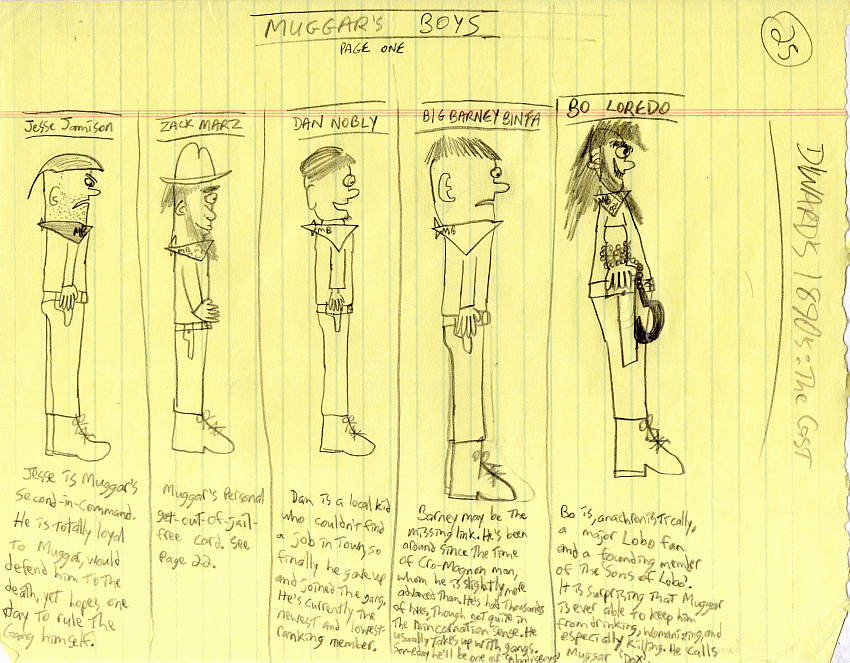 MUGGAR'S BOYS
PAGE ONE
25
Jesse Jamison
ZACK MARZ
DAN NOBLY
BIG BARNEY BINTA
BO LOREDO
MB
MB
MB
MB
MB
DWARD'S 1890's: The Cast
Jesse is Muggar's
Second-in-command.
He is totally loyal
to Muggar, would
defend him to the
death, yet hopes one
day to rule the
Gang himself.
Muggar's Personal
get-out-of-jail-
free card. See
Page 22.
Dan is a local kid
who couldn't find
a job in Town, so
finally he gave up
and joined the gang.
He's currently the
newest and lowest-
ranking member.
Barney may be the
missing link. He's been
around since the time
of Cro-Magnon man,
whom he is slightly more
advanced than. He's had thousands
of lives, though not quite in
the reincarnation sense. He
usually takes up with gangs.
Someday he'll be one of
Bo is, anachronistically,
a major Lobo fan
and a founding member
of the Sons of Lobo.
It is surprising that Muggar
is ever able to keep him
from drinking, womanizing, and
especially killing. He calls
Muggar 'Dox'.